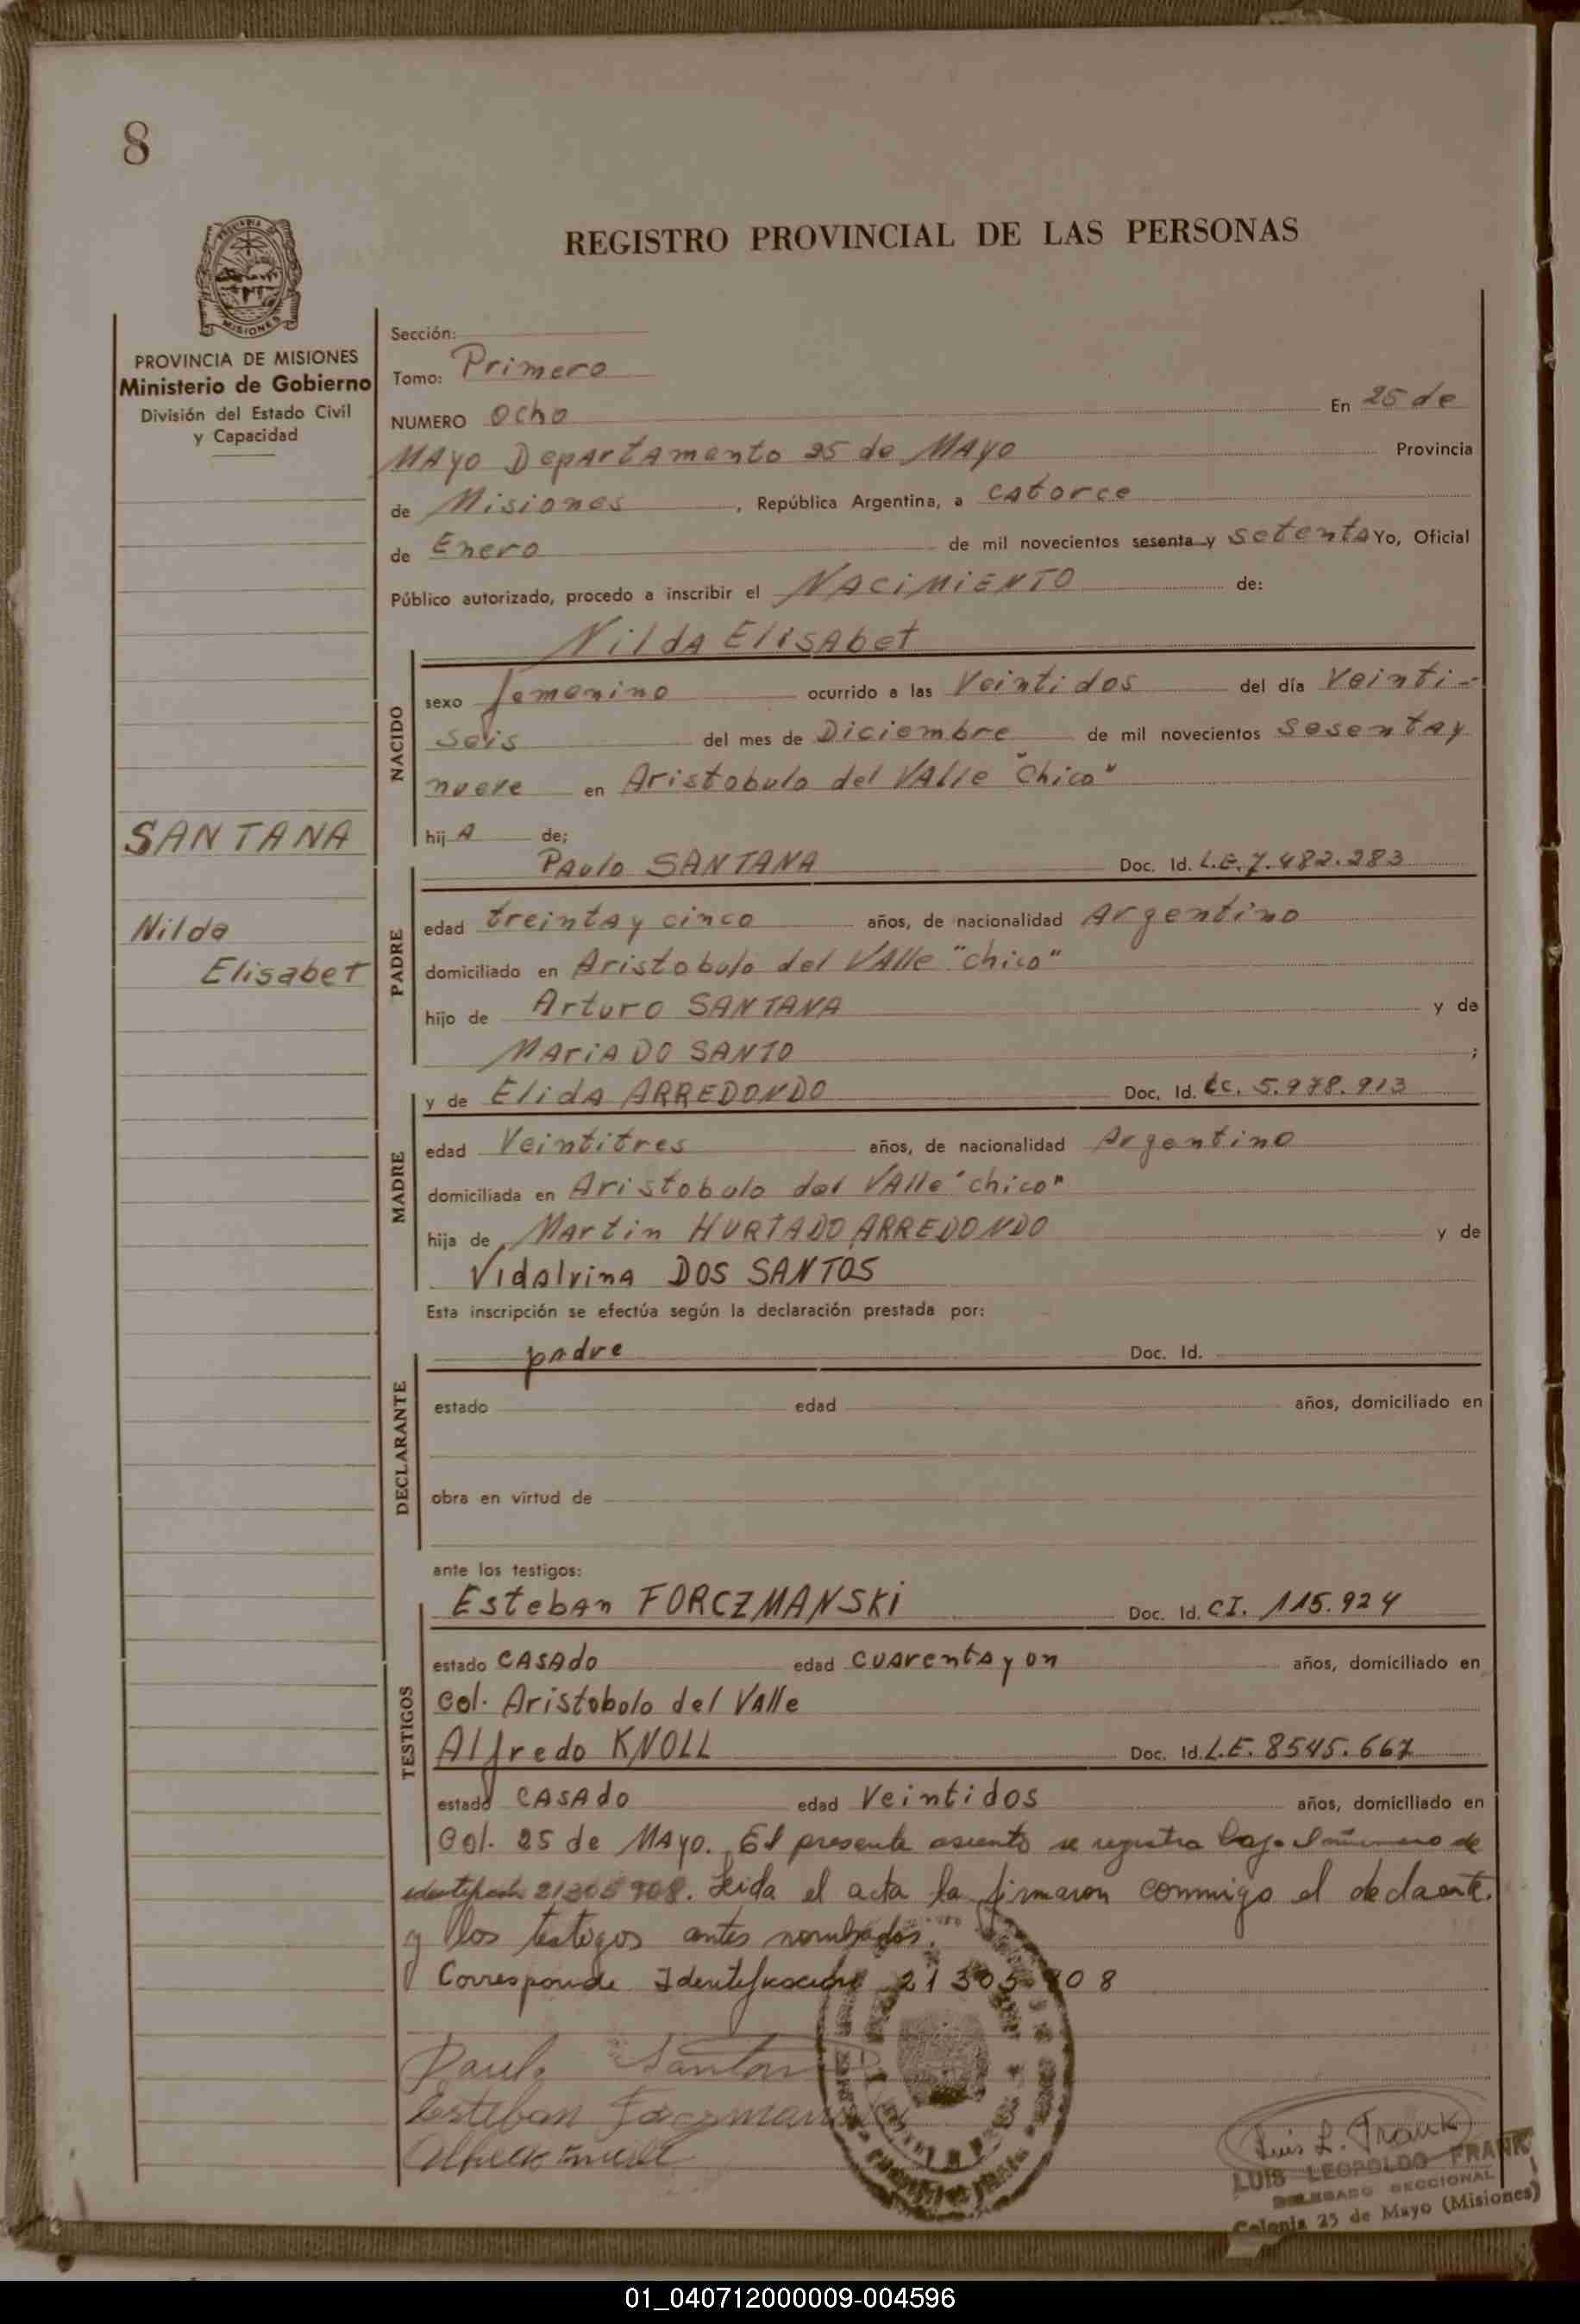 8
REGISTRO PROVINCIAL DE LAS PERSONAS
PROVINCIA DE MISIONES
Ministerio de Gobierno
División del Estado Civil
y Capacidad
SANTANA
Nilda
Elisabet
Sección:
Tomo: Primero
NUMERO Ocho En 25 de
MAyo DepArtAmento 25 de MAyo Provincia
de Misiones, República Argentina, a cAtorce
de Enero de mil novecientos sesenta y setentA Yo, Oficial
Público autorizado, procedo a inscribir el NACIMIENTO de:
NildA ElisAbet
NACIDO
sexo femenino ocurrido a las Veintidos del día Veinti-
seis del mes de Diciembre de mil novecientos SesentAy
nueve en Aristobulo del VAlle "Chico"
hij A de;
PAulo SANTANA Doc. Id. L.E. 7.482.283
PADRE
edad treintAy cinco años, de nacionalidad Argentino
domiciliado en Aristobulo del VAlle "chico"
hijo de Arturo SANTANA y de
MAriA DO SANTO ;
y de ElidA ARREDONDO Doc. Id. LC. 5.978.913
MADRE
edad Veintitres años, de nacionalidad Argentino
domiciliada en Aristobulo del VAlle "chico"
hija de MArtin HURTADO ARREDONDO y de
VidAlvinA DOS SANTOS
Esta inscripción se efectúa según la declaración prestada por:
pAdre Doc. Id.
DECLARANTE
estado edad años, domiciliado en
obra en virtud de
ante los testigos:
TESTIGOS
EstebAn FORCZMANSKI Doc. Id. CI. 115.924
estado CASAdo edad cuArentA y un años, domiciliado en
Col. Aristobolo del VAlle
Alfredo KNOLL Doc. Id. L.E. 8545.667
estado CASAdo edad Veintidos años, domiciliado en
Col. 25 de MAyo. El presente asiento se registra bajo el número de
21305908. Leida el acta la firmaron conmigo el declarante
y los testigos antes nombrados.
Corresponde Identificación 21305908
Paulo Santana
Esteban Forczmanski
Luis L. Frank
LUIS LEOPOLDO FRANK
DELEGADO SECCIONAL
Colonia 25 de Mayo (Misiones)
01_040712000009-004596